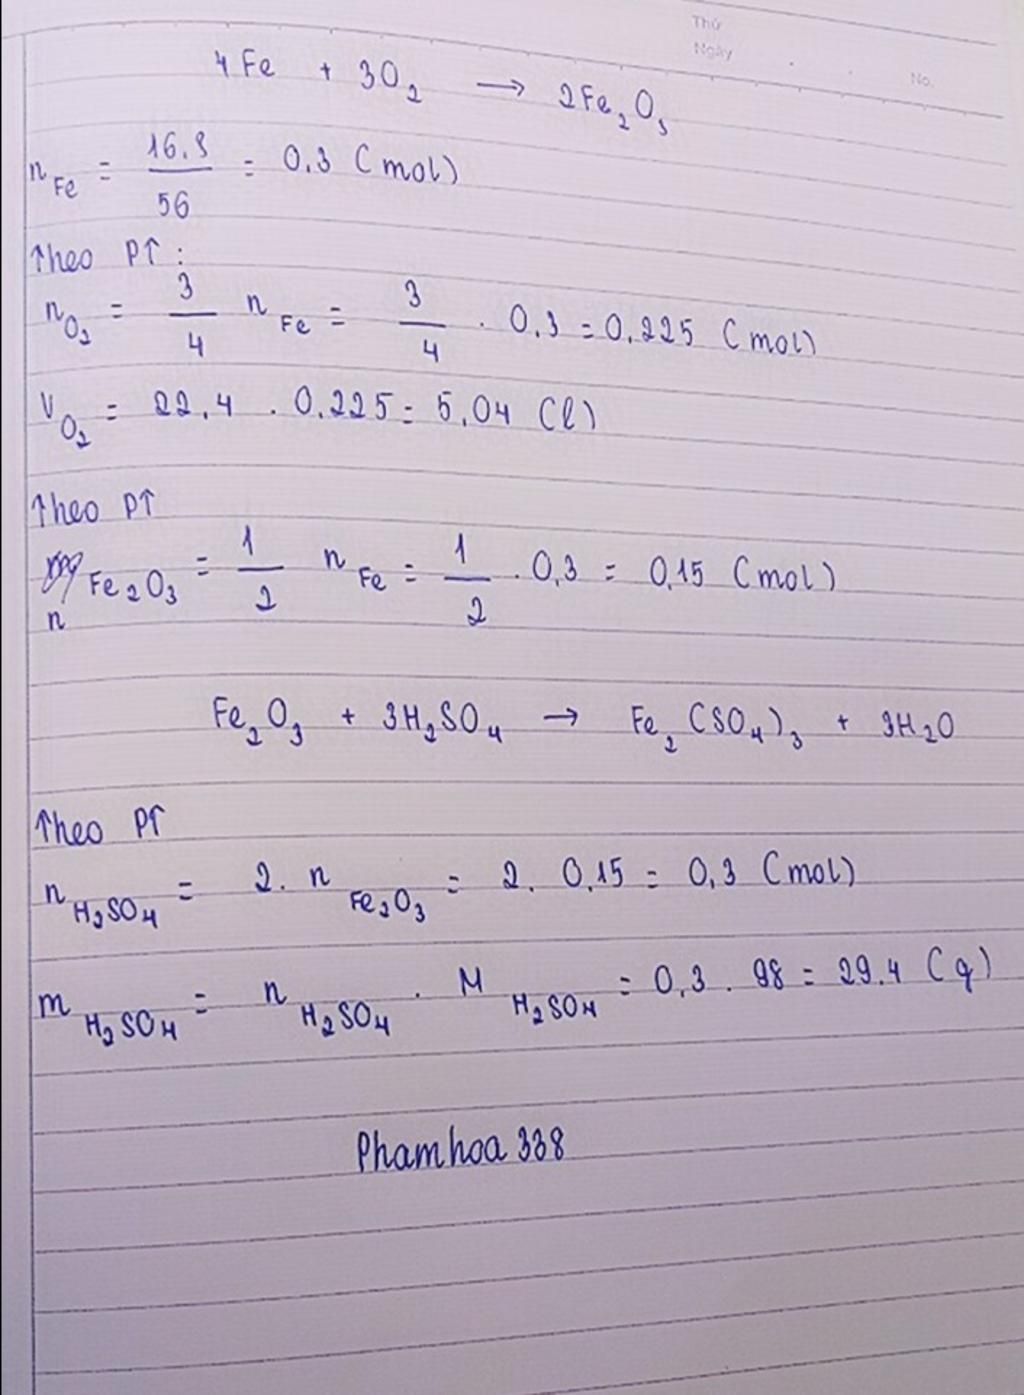 Thứ
Ngày
No.
4Fe + 3O₂ → 2Fe₂O₃
n Fe = 16.8/56 = 0.3 (mol)
Theo PT:
n O₂ = 3/4 n Fe = 3/4 . 0,3 = 0,225 (mol)
V O₂ = 22,4 . 0,225 = 5,04 (l)
Theo PT
n Fe₂O₃ = 1/2 n Fe = 1/2 . 0,3 = 0,15 (mol)
Fe₂O₃ + 3H₂SO₄ → Fe₂(SO₄)₃ + 3H₂O
Theo PT
n H₂SO₄ = 2. n Fe₂O₃ = 2. 0,15 = 0,3 (mol)
m H₂SO₄ = n H₂SO₄ . M H₂SO₄ = 0,3 . 98 = 29.4 (g)
Phamhoa 338